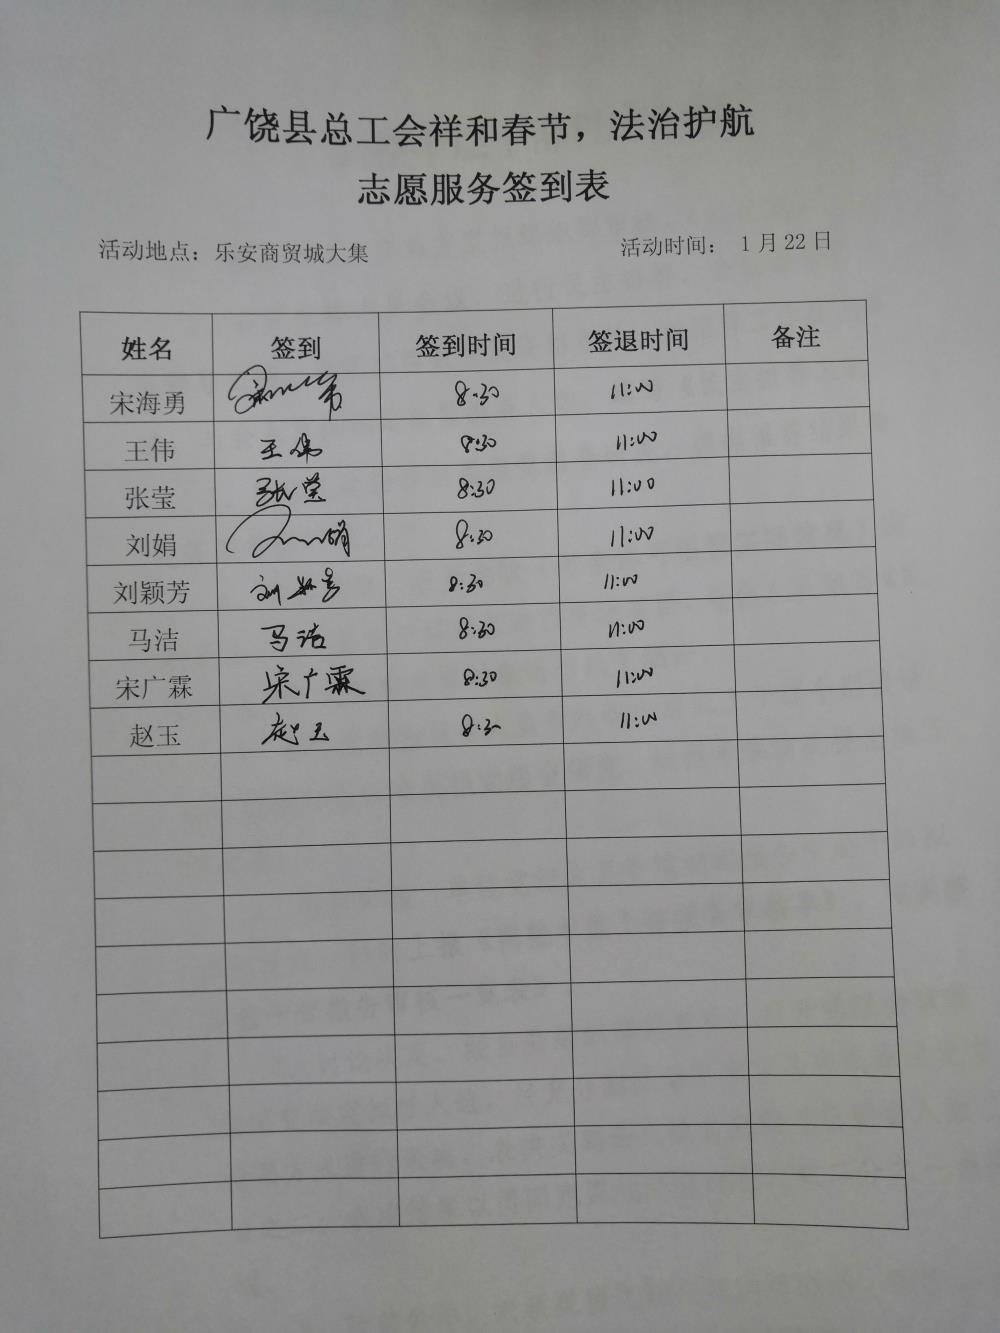 广饶县总工会祥和春节，法治护航
志愿服务签到表
活动地点：乐安商贸城大集 活动时间： 1月22日
姓名 签到 签到时间 签退时间 备注
宋海勇 8:30 11:00
王伟 王伟 8:30 11:00
张莹 张莹 8:30 11:00
刘娟 8:30 11:00
刘颖芳 8:30 11:00
马洁 马洁 8:30 11:00
宋广霖 宋广霖 8:30 11:00
赵玉 赵玉 8:30 11:00